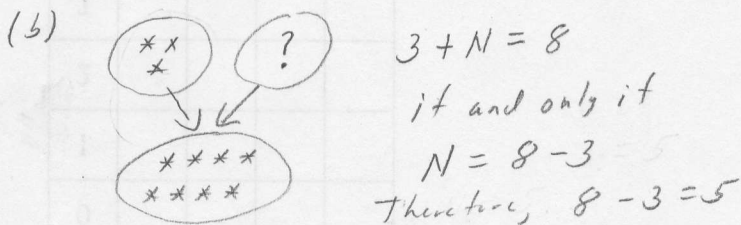 (b)
* *
*
?
* * * *
* * * *
3 + N = 8
if and only if
N = 8 - 3
Therefore, 8 - 3 = 5